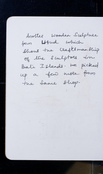 Scotts wooden Sculpture
from Ubud which
Show the craftmanship
of the Sculptors in
Bali Islands we picked
up a few more from
the Same Shop